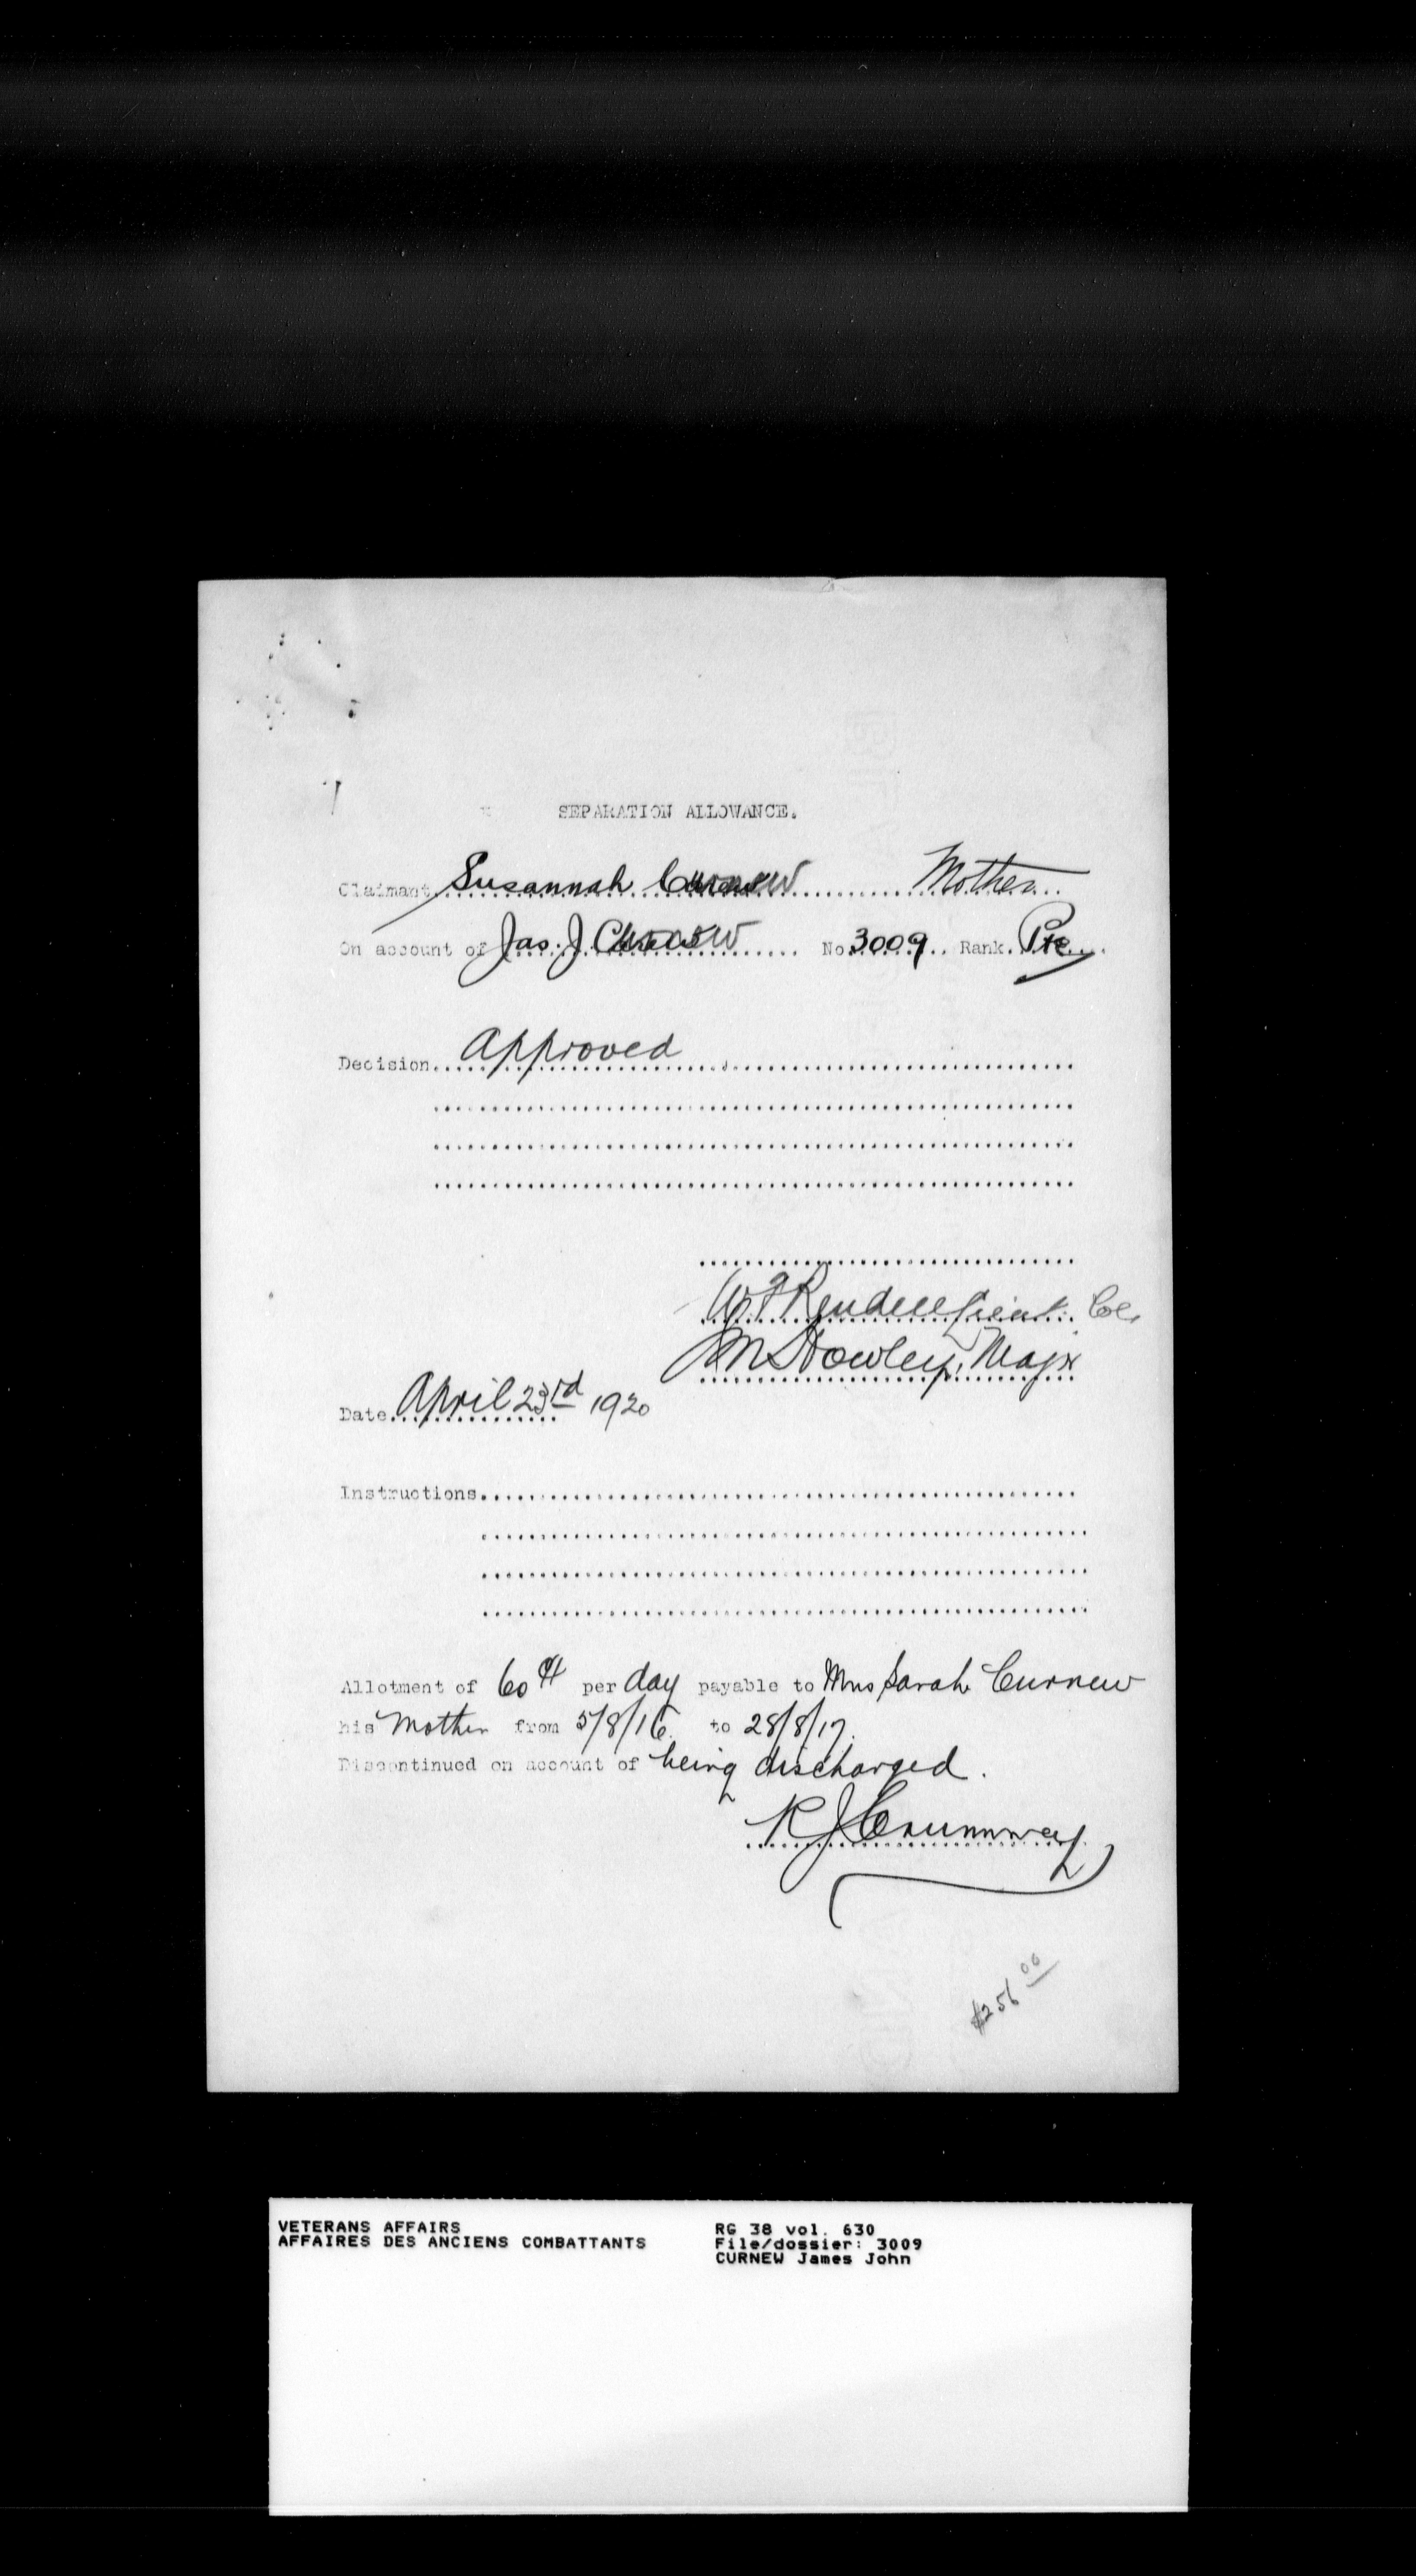 SEPARATION ALLOWANCE.
Claimant Susannah Curnew Mother
On account of Jas. J Curnew No. 3009 Rank. Pte
Decision. Approved
W F Rendell Lieut. Col.
J M Howley, Major
Date. April 23rd 1920
Instructions
Allotment of 60 ¢ per day payable to Mrs Sarah Curnew
his Mother from 5/8/16 to 28/8/17.
Discontinued on account of being discharged.
R J
$256 00
VETERANS AFFAIRS
AFFAIRES DES ANCIENS COMBATTANTS
RG 38 vol. 630
File/dossier: 3009
CURNEW James John